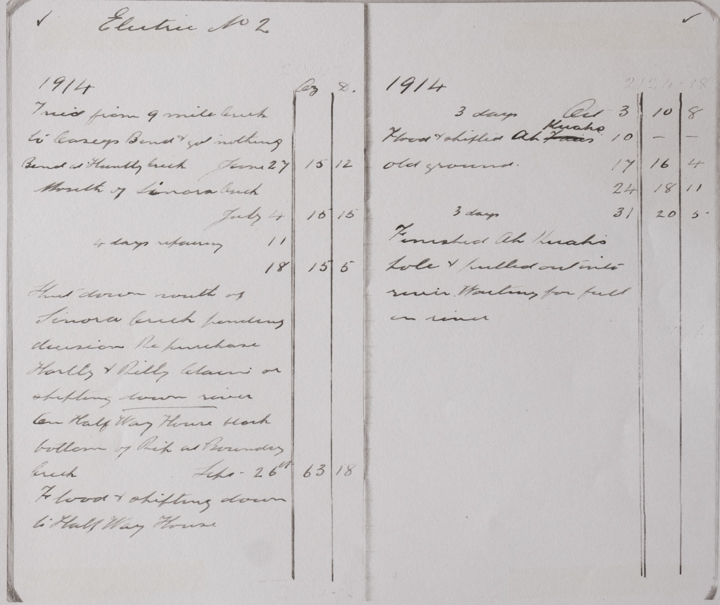 Electric No 2
1914 Oz D.
Tried from 9 mile Creek
to Caseys Bend & got nothing
Bend at Huntly Creek June 27 15 12
Mouth of Sinora Creek
July 4 15 15
4 days repairing 11
18 15 5
Shut down mouth of
Sinora Creek pending
decision Re purchase
Hartly & Rilly Claim or
shifting down river
On Half Way House back
bottom of Rip at Boundry
Creek Sept 26th 63 18
Flood & shifting down
to Half Way House
1914
3 days Oct 3 10 8
Kuahs
Flood & shifted Ah 10 - -
old ground. 17 16 4
24 18 11
3 days 31 20 5
Finished Ah Kuahs
hole & pulled out into
river Waiting for fall
in river